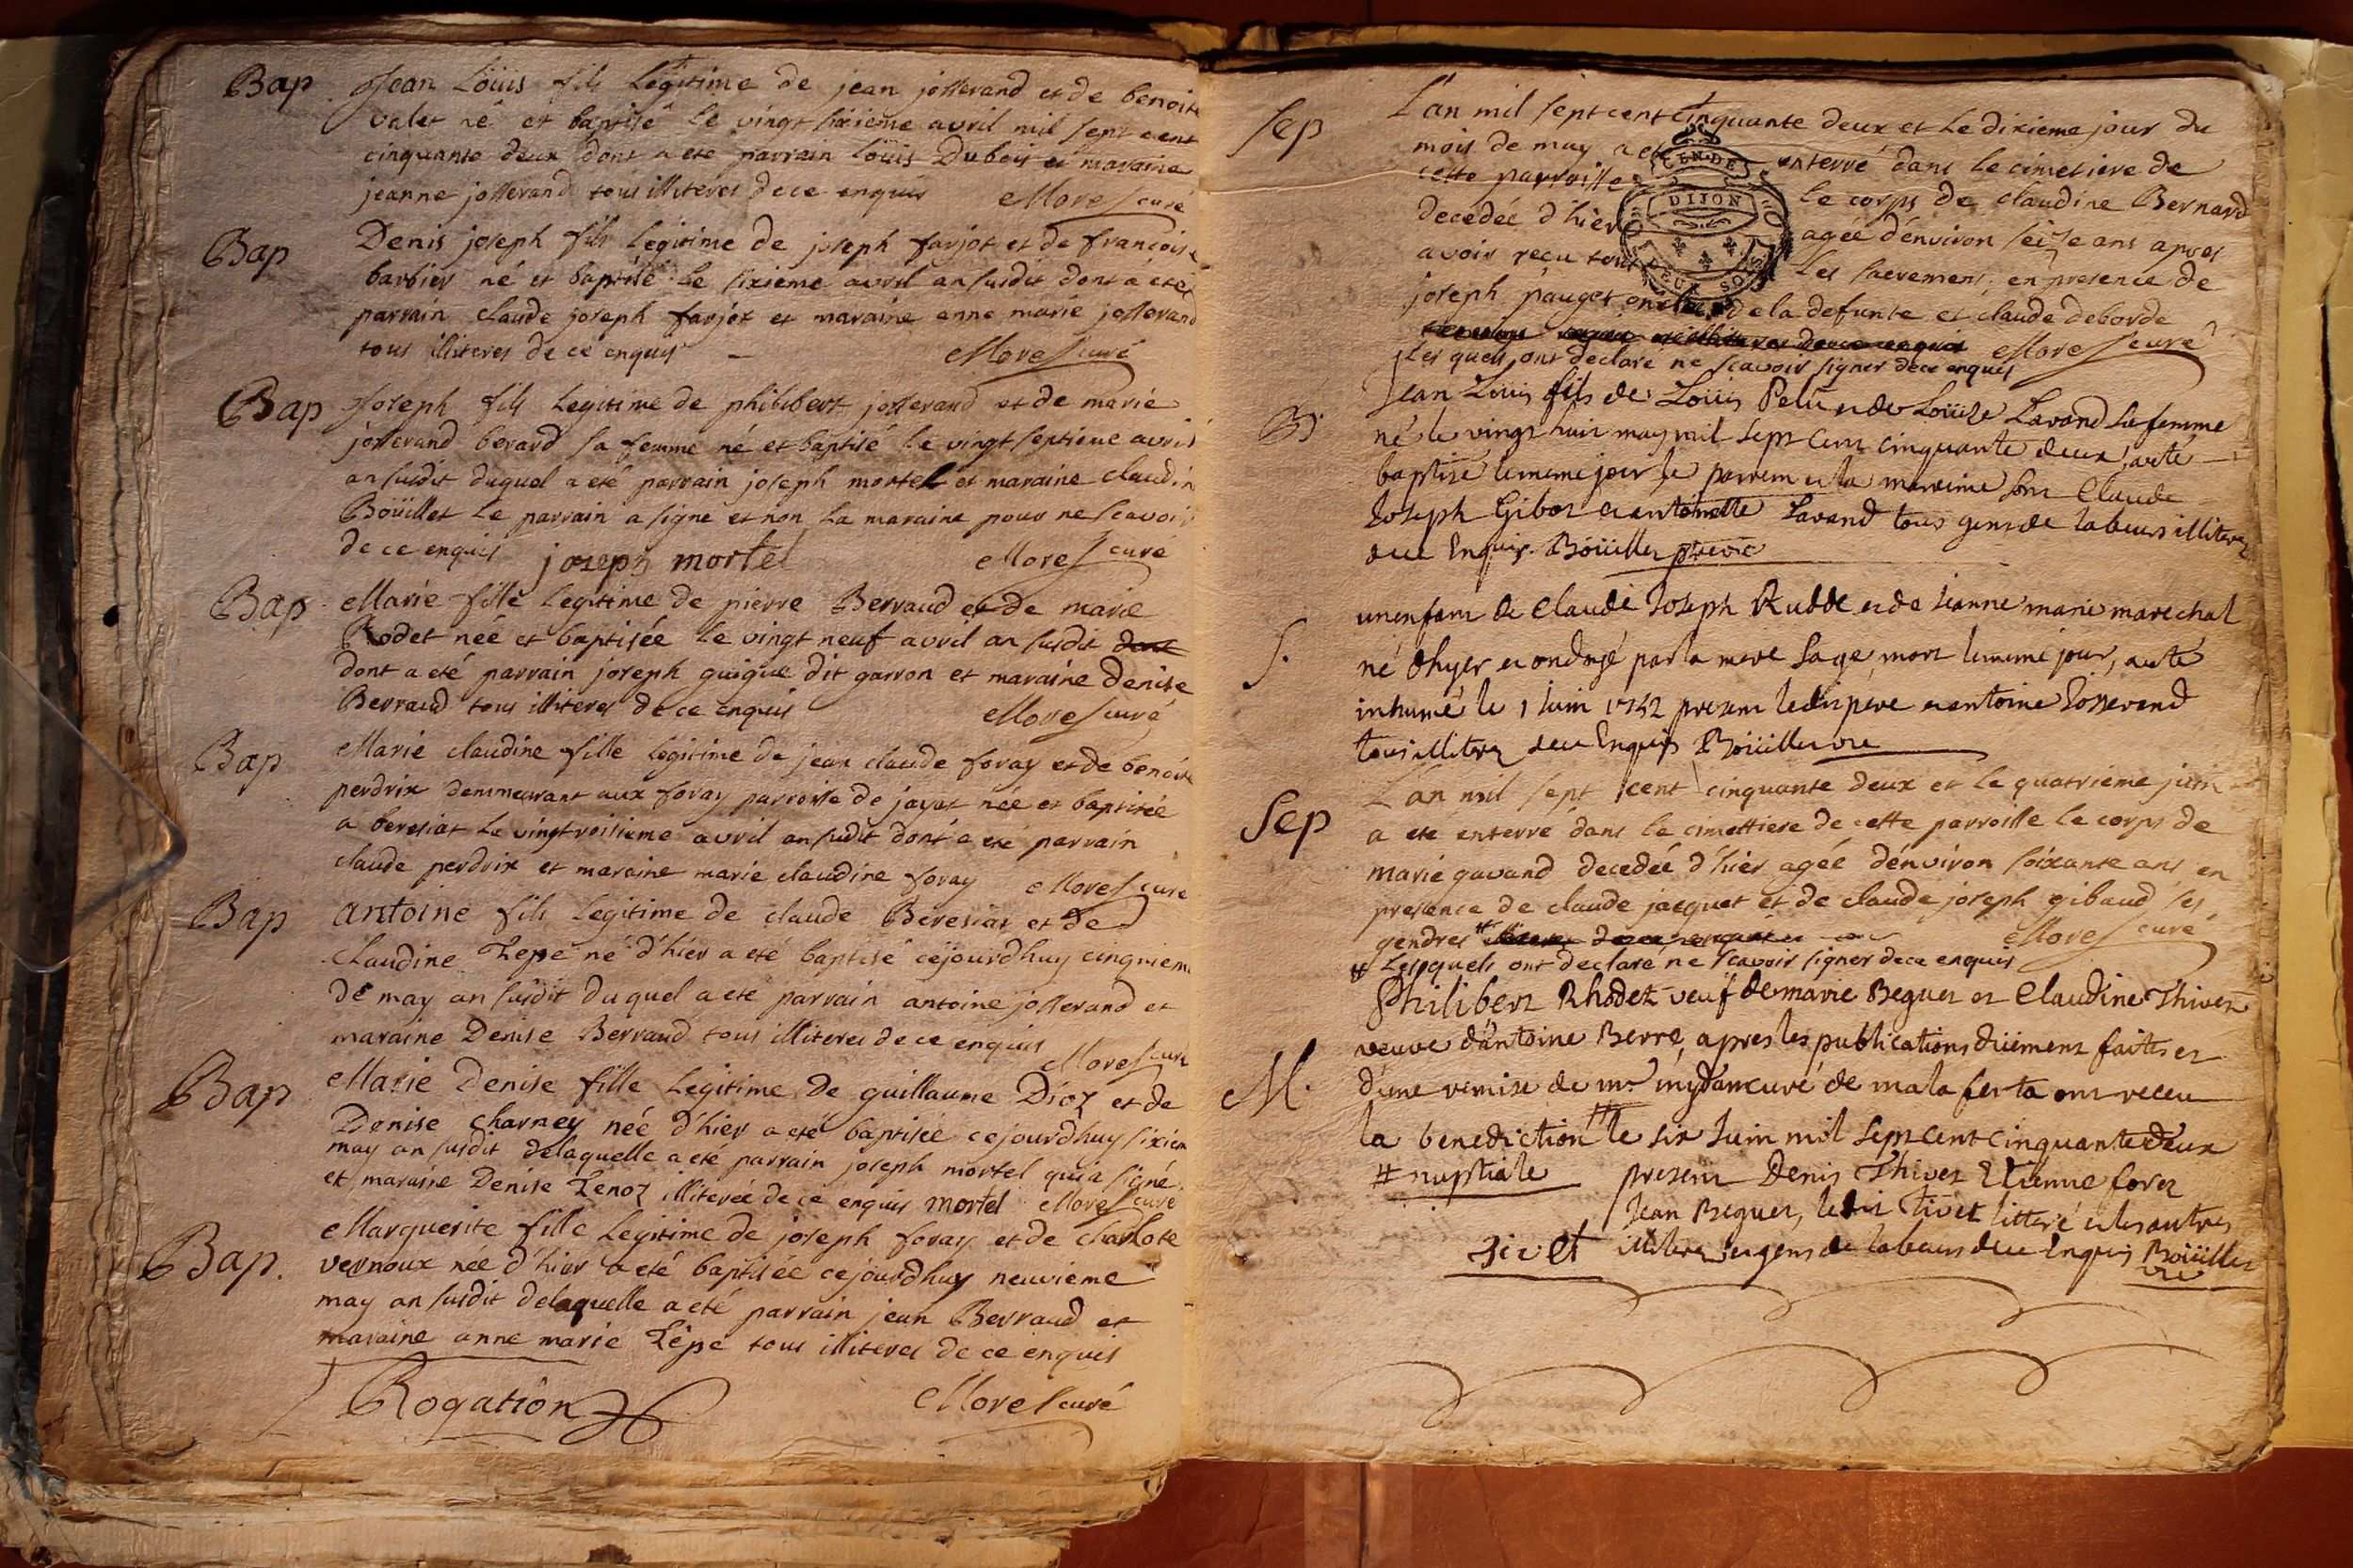 Bap Jean Loüis fils Legitime de jean josserand et de benoite
valet né et baptisé le vingt sixieme avril mil sept cent
cinquante deux dont a eté parrain loüis Dubois et maraine
jeanne josserand tous illiteres de ce enquis Morel curé
Bap Denis joseph fils Legitime de joseph farjot et de francoise
barbier né et baptisé le sixieme avril an susdit dont a eté
parrain claude joseph farjot et maraine anne marie josserand
tous illiteres de ce enquis Morel curé
Bap Joseph fils Legitime de philibert josserand et de marie
josserand berard sa femme né et baptisé le vingt septieme avril
an susdit duquel a eté parrain joseph mortel et maraine claudin
Boüillet Le parrain a signé et non La maraine pour ne scavoir
de ce enquis joseph mortel Morel curé
Bap Marie fille Legitime de pierre Berraud et de marie
Rodet née et baptisée le vingt neuf avril an susdit dont
dont a eté parrain joseph guigue dit garron et maraine Denise
Berraud tous illiteres de ce enquis Morel curé
Bap Marie claudine fille legitime de jean claude foray et de benoite
perdrix demmeurant aux foray parroisse de jayat née et baptisée
a beresiat le vingtroisieme avril an susdit dont a eté parrain
claude perdrix et maraine marie claudine foray Morel curé
Bap antoine fils Legitime de claude Beresiat et de
claudine Lepé né d'hier a eté baptisé cejourdhuy cinquieme
de may an susdit duquel a eté parrain antoine josserand et
maraine Denise Berraud tous illiteres de ce enquis
Morel curé
Bap Marie Denise fille Legitime de guillaume Dioz et de
Denise charney née d'hier a eté baptisée cejourdhuy sixiem
may an susdit delaquelle a eté parrain joseph mortel qui a signé
et maraine Denise Lenoz illiterée de ce enquis mortel Morel curé
Bap. Marguerite fille Legitime de joseph foray et de charlote
vernoux née d'hier a eté baptisée cejourdhuy neuvieme
may an susdit delaquelle a eté parrain jean Berraud et
maraine anne marie Lépé tous illiteres de ce enquis
Rogation Morel curé
Sep L'an mil sept cent cinquante deux et Le dixieme jour du
mois de may a eté enterré dans le cimetiere de
cette parroisse le corps de claudine Bernard
DIJON
decedée d'hier agée d'environ seize ans apres
avoir reçu tous Les sacremens, en presence de
DEUX SOLS
joseph pauget de la defunte et claude deborde
Morel curé
Les quels ont declaré ne scavoir signer de ce enquis
B. Jean Louis fils de Loüis Pelu et de Loüise Lavand sa femme
né le vingt huit may mil sept cent cinquante deux, a eté
baptise le meme jour le parrein et la mareine sont Claude
Joseph Gibot et antoinette Lavand tous gens de labeurs illiteres
de ce Enquis. Boüillet
S. un enfant de Claude Joseph Rudde et de Jeanne marie marechal
né d'hyer et ondoyé par la mere sage, mort le meme jour, a eté
inhumé le 1 Juin 1752 present le dit pere et antoine Josserand
tous illiteres de ce Enquis Boüillet vre
Sep L'an mil sept cent cinquante deux et le quatrieme juin
a eté enterré dans le cimettiere de cette parroisse le corps de
marie gavand decedée d'hier agée d'environ soixante ans en
presence de claude jacquet et de claude joseph gibaud ses
gendres # Morel curé
# Lespquels ont declaré ne scavoir signer de ce enquis
Philibert Rhodet veuf de marie Beguet et Claudine Thivet
veuve d'antoine Berre, apres les publications düement faittes et
M. d'une remise de mr curé de malaferta ont receu
la benediction # le six Juin mil sept cent cinquante deux
# nuptiale present Denis Thivet Etienne foret
Jean Beguet, le dit Tivet litteré et les autres
tivet illiteres et gens de labeurs de ce Enquis Boüillet
vre